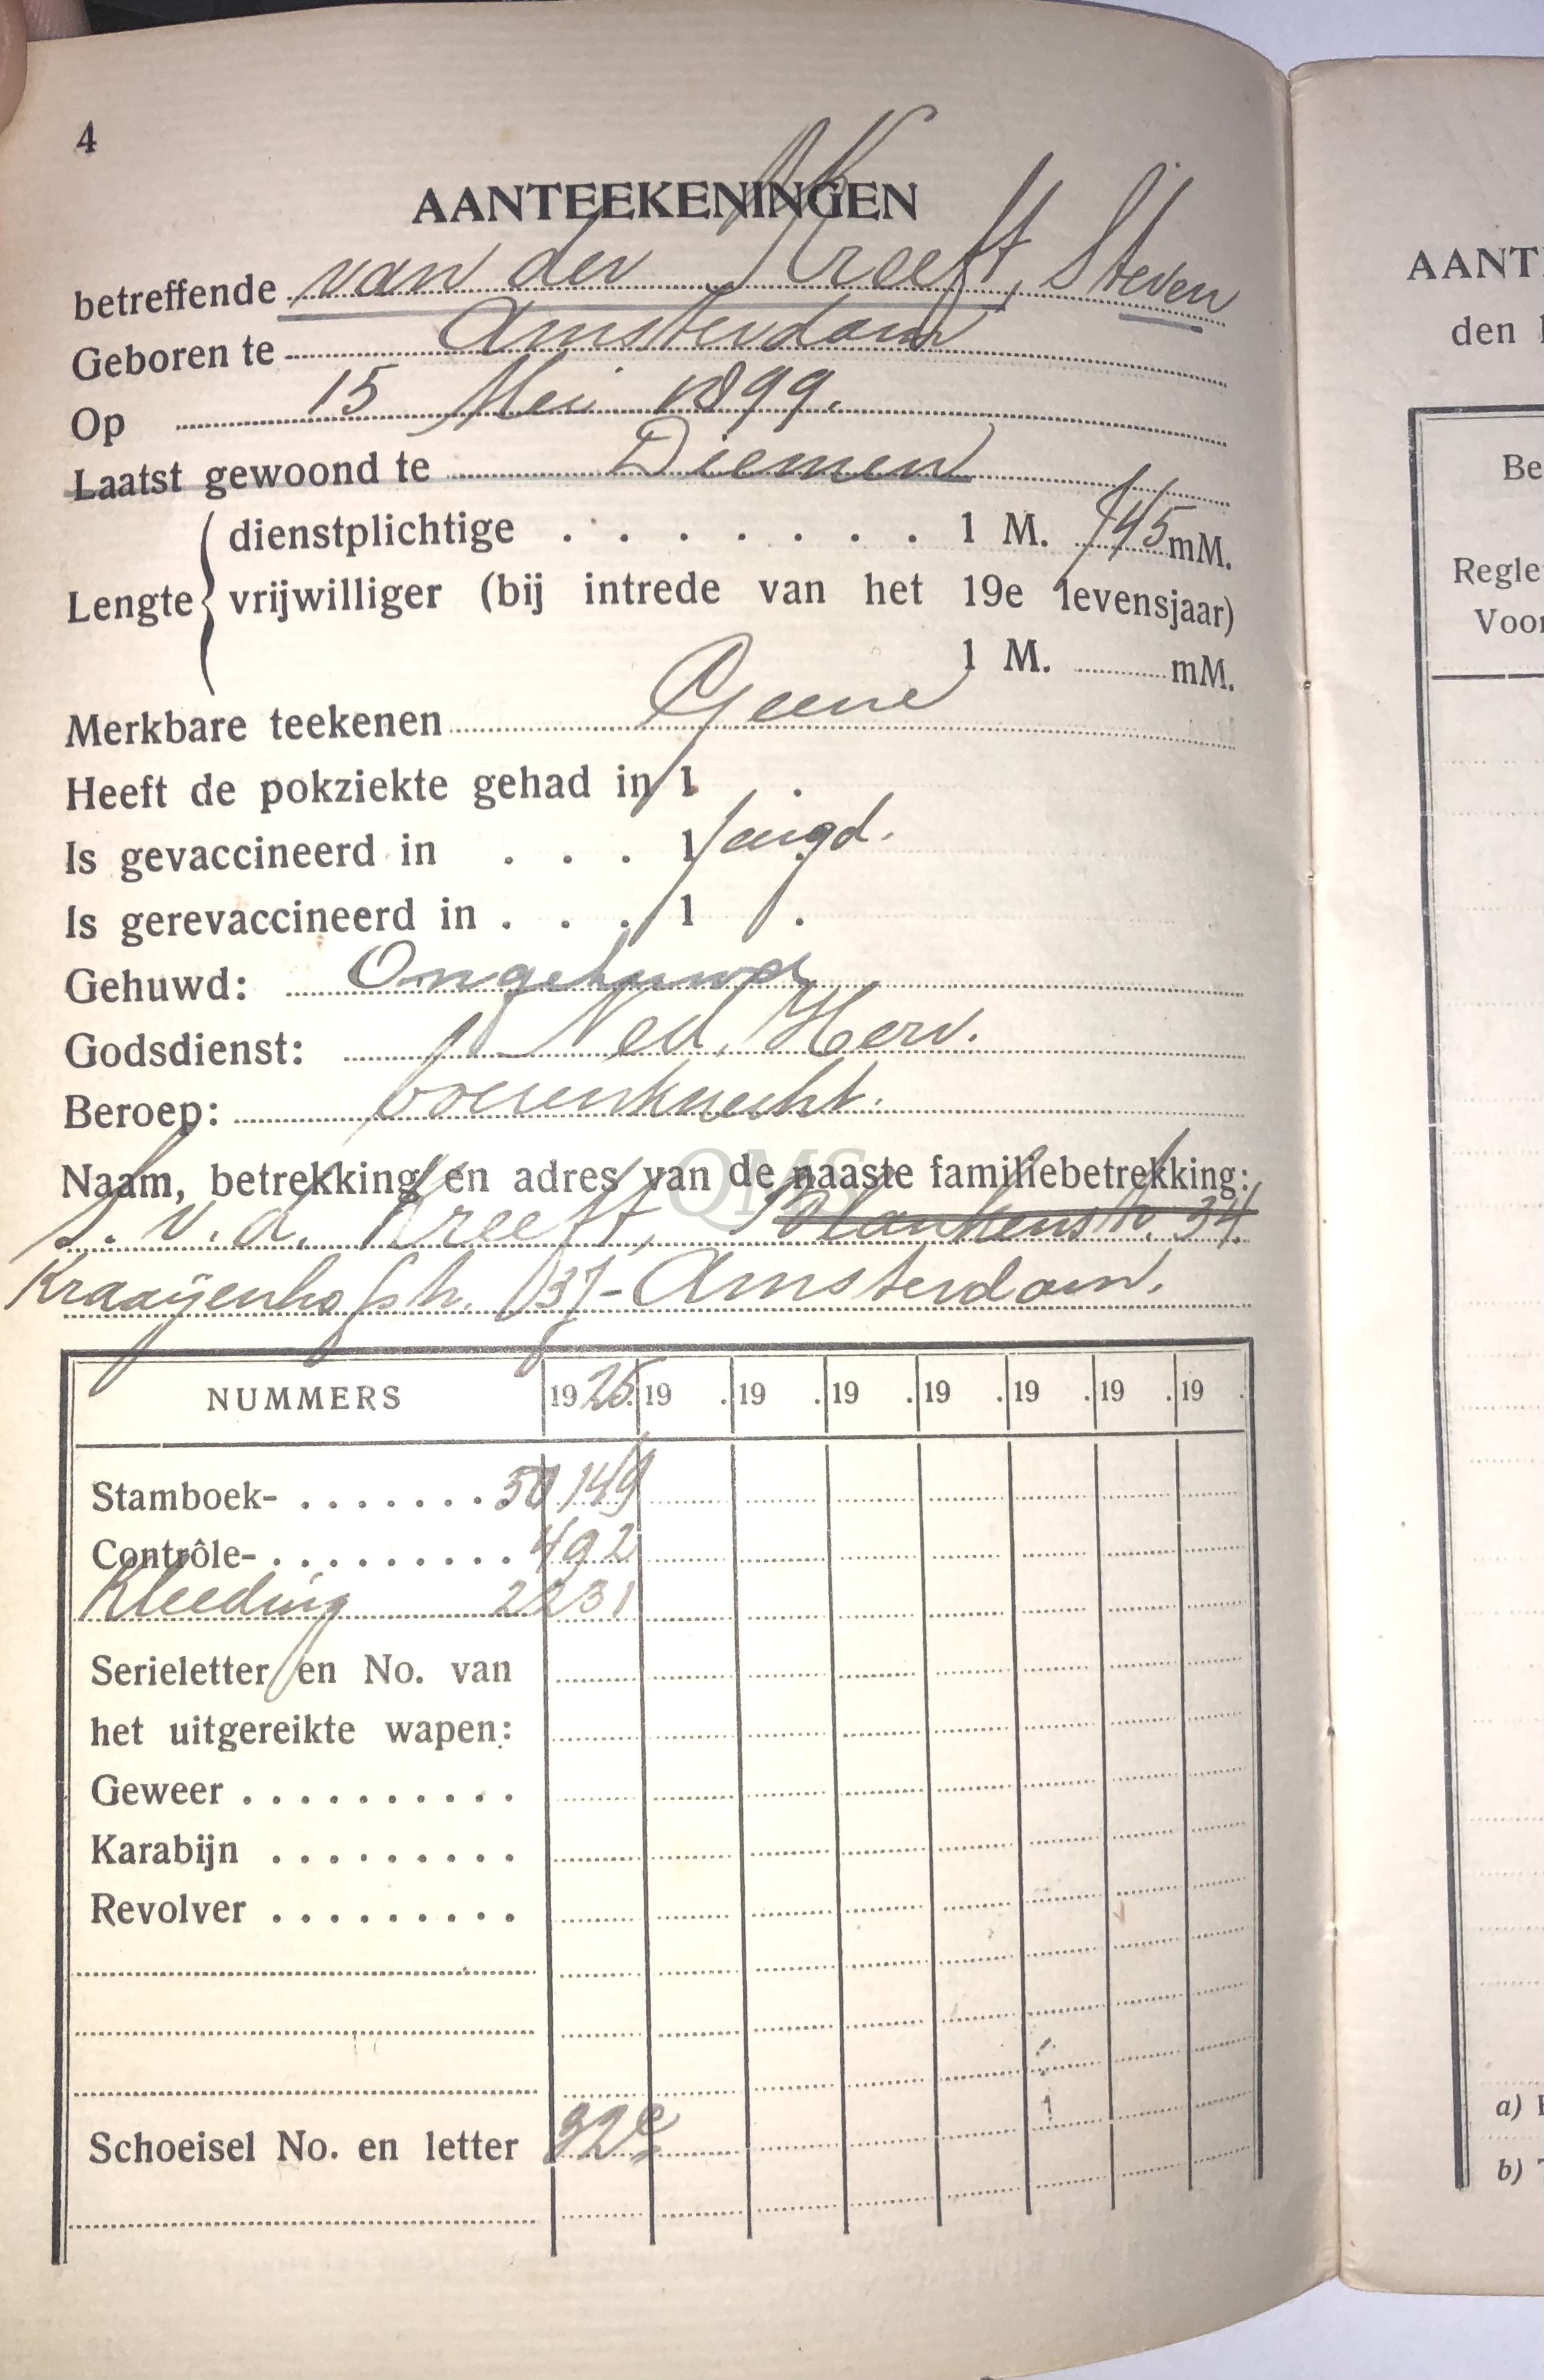 4
AANTEEKENINGEN
betreffende van der Kreeft, Steven
Geboren te Amsterdam
Op 15 Mei 1899.
Laatst gewoond te Diemen
Lengte dienstplichtige . . . . . . . 1 M. 745 mM.
vrijwilliger (bij intrede van het 19e levensjaar)
1 M. mM.
Merkbare teekenen Geene
Heeft de pokziekte gehad in 1 .
Is gevaccineerd in . . . 1 Jeugd.
Is gerevaccineerd in . . . 1 .
Gehuwd: Ongehuwd
Godsdienst: Ned. Herv.
Beroep: boerenknecht.
Naam, betrekking en adres van de naaste familiebetrekking:
S. v. d. Kreeft, Blankenstr. 34.
Kraayenhofstr. 37-Amsterdam.
NUMMERS 1925. 19 . 19 . 19 . 19 . 19 . 19 . 19 .
Stamboek- . . . . . . . 50149
Contrôle- . . . . . . . . . 492
Kleeding 2231
Serieletter en No. van
het uitgereikte wapen:
Geweer . . . . . . . . . .
Karabijn . . . . . . . . .
Revolver . . . . . . . . .
Schoeisel No. en letter 32e
QMS
AANT
den
Be
Regle
Voor
a)
b)